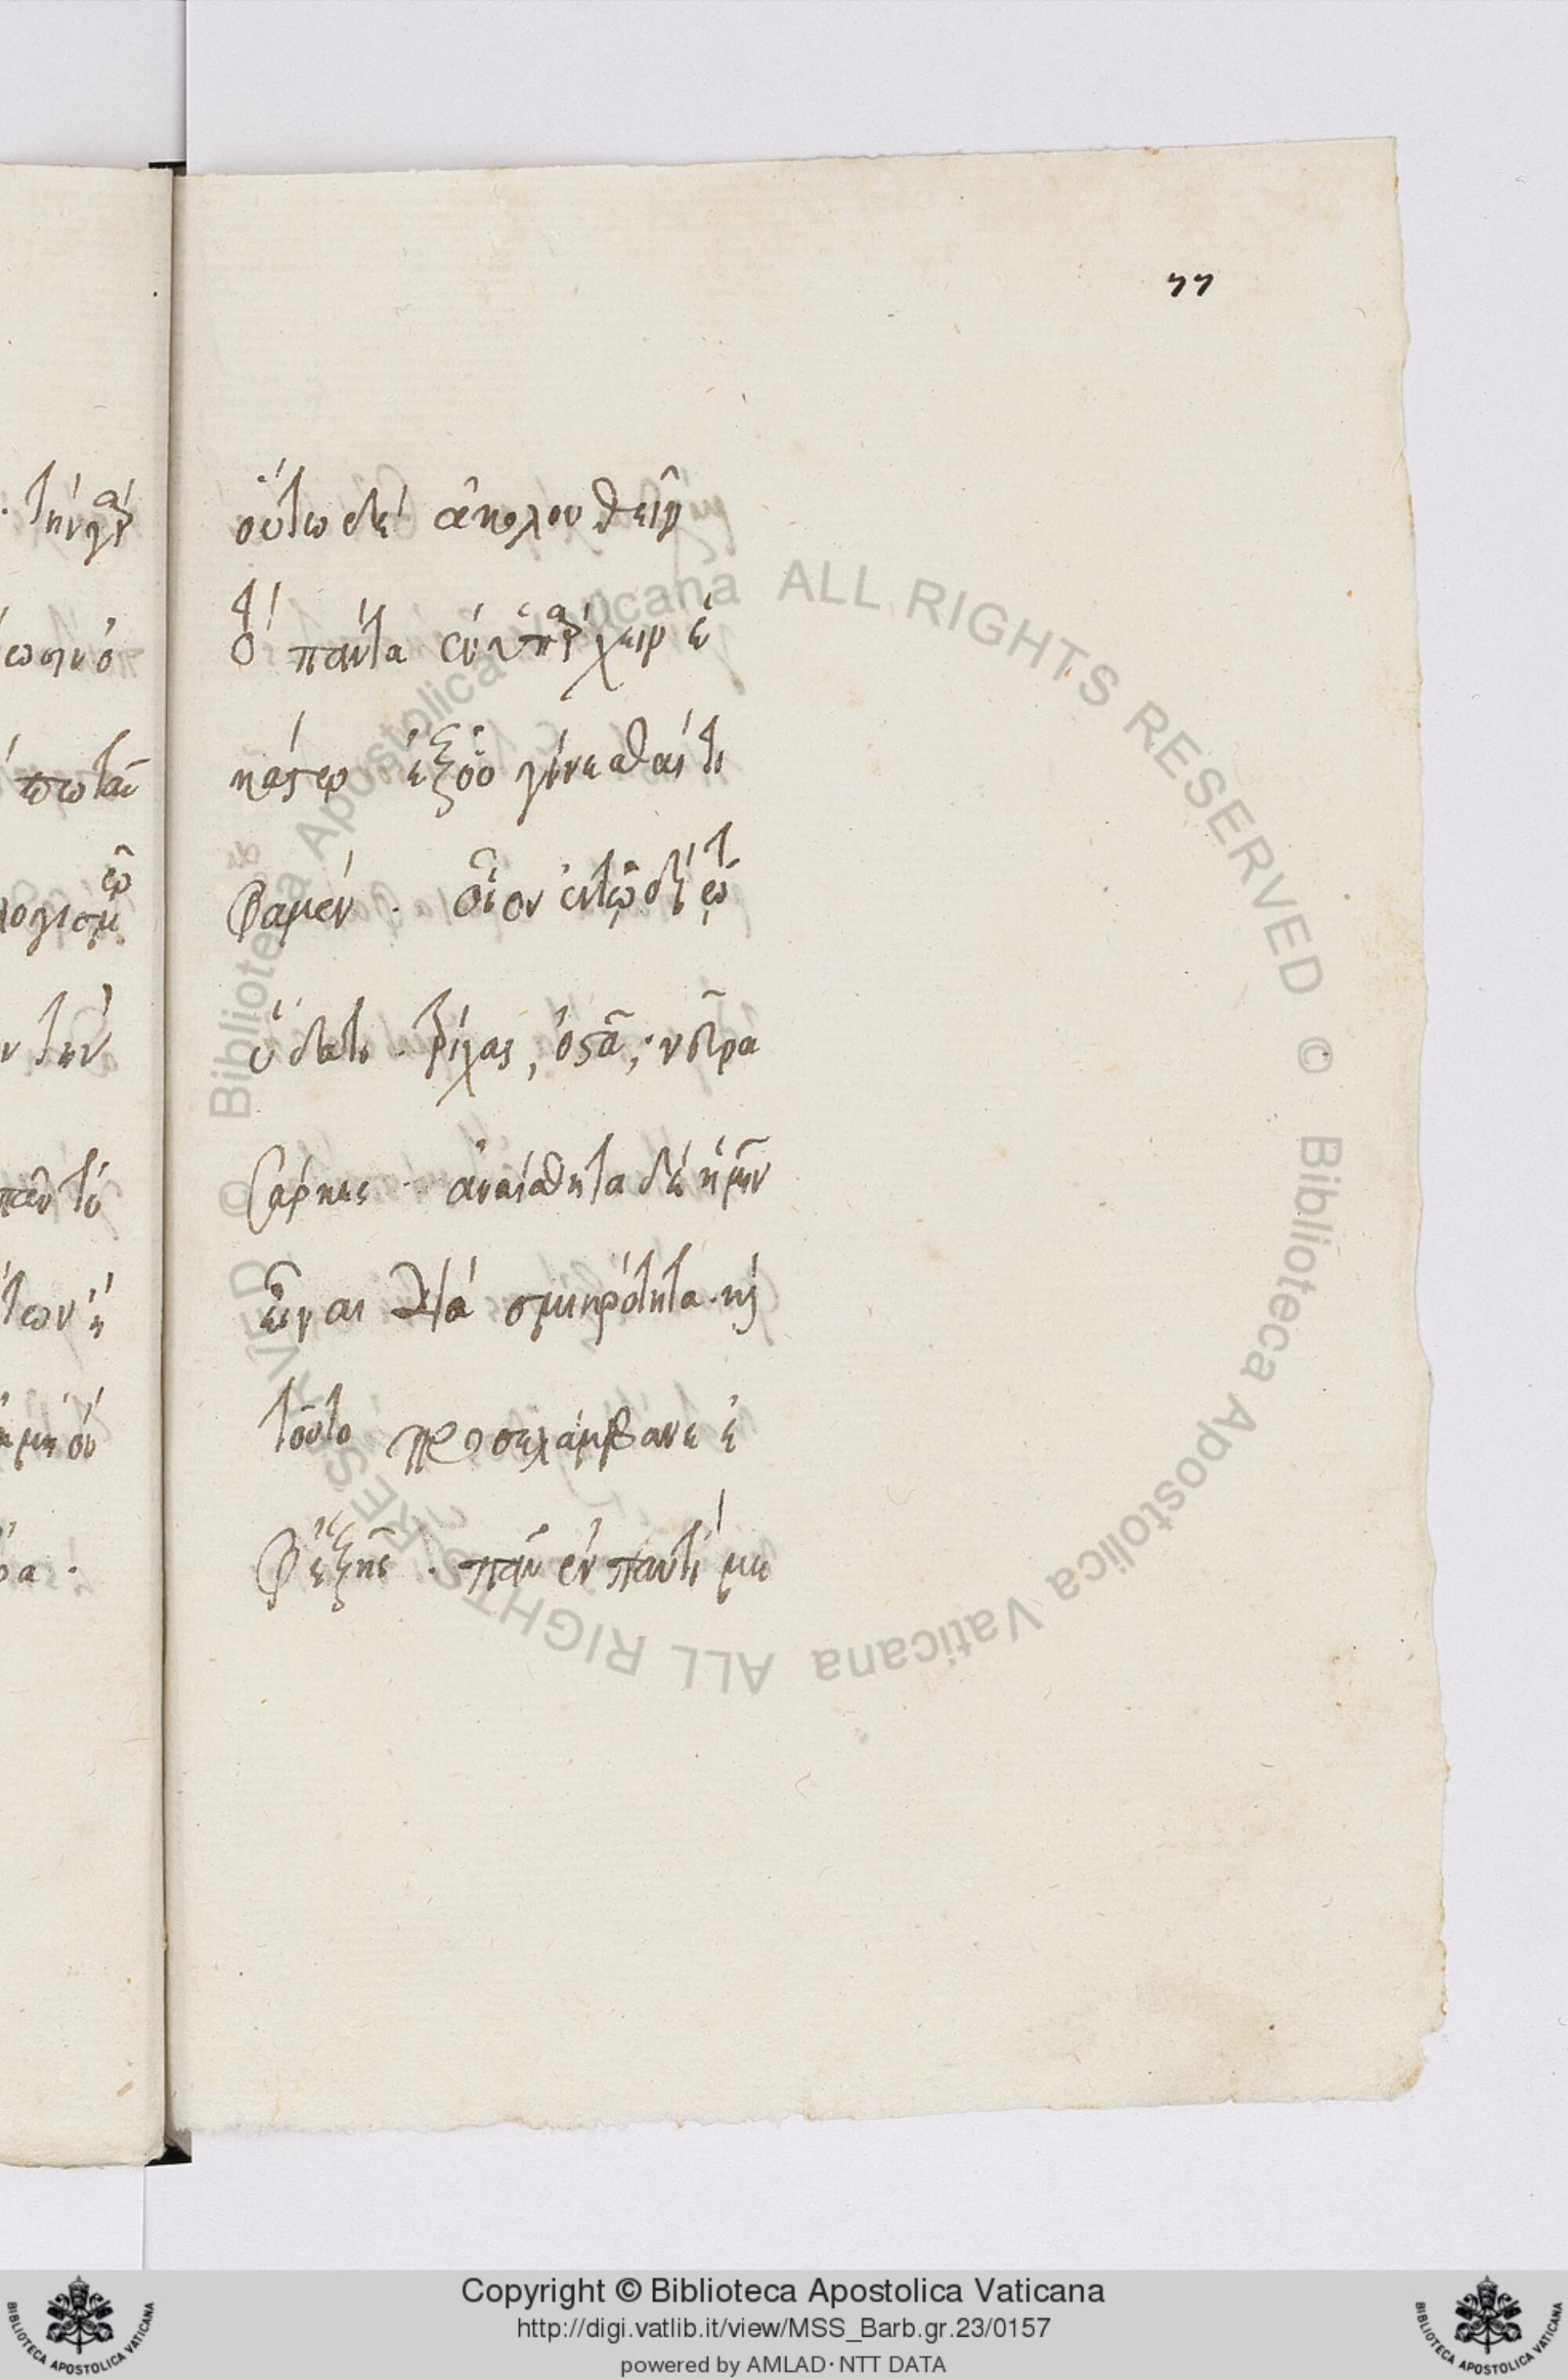 77
οὕτω δεῖ ἀκολουθεῖν
τὸ πάντα ἐνυπάρχειν ἑ
κάστῳ ἐξ οὗ γίνεσθαί τι
φαμέν. οἷον ἐν τῷδε τῷ
ὕδατι. τρίχας, ὀστᾶ, νεῦρα
σάρκας. ἀναίσθητα δὲ ἡμῖν
εἶναι διὰ σμικρότητα. καὶ
τοῦτο προσελάμβανε ἐ
φεξῆς. πᾶν ἐν παντὶ με
τὴν γὰρ
λογισμῷ
ν τὴν
των ἢ
© Biblioteca Apostolica Vaticana ALL RIGHTS RESERVED © Biblioteca Apostolica Vaticana ALL RIGHTS RESERVED
Copyright © Biblioteca Apostolica Vaticana
http://digi.vatlib.it/view/MSS_Barb.gr.23/0157
powered by AMLAD·NTT DATA
BIBLIOTECA APOSTOLICA VATICANA
BIBLIOTECA APOSTOLICA VATICANA